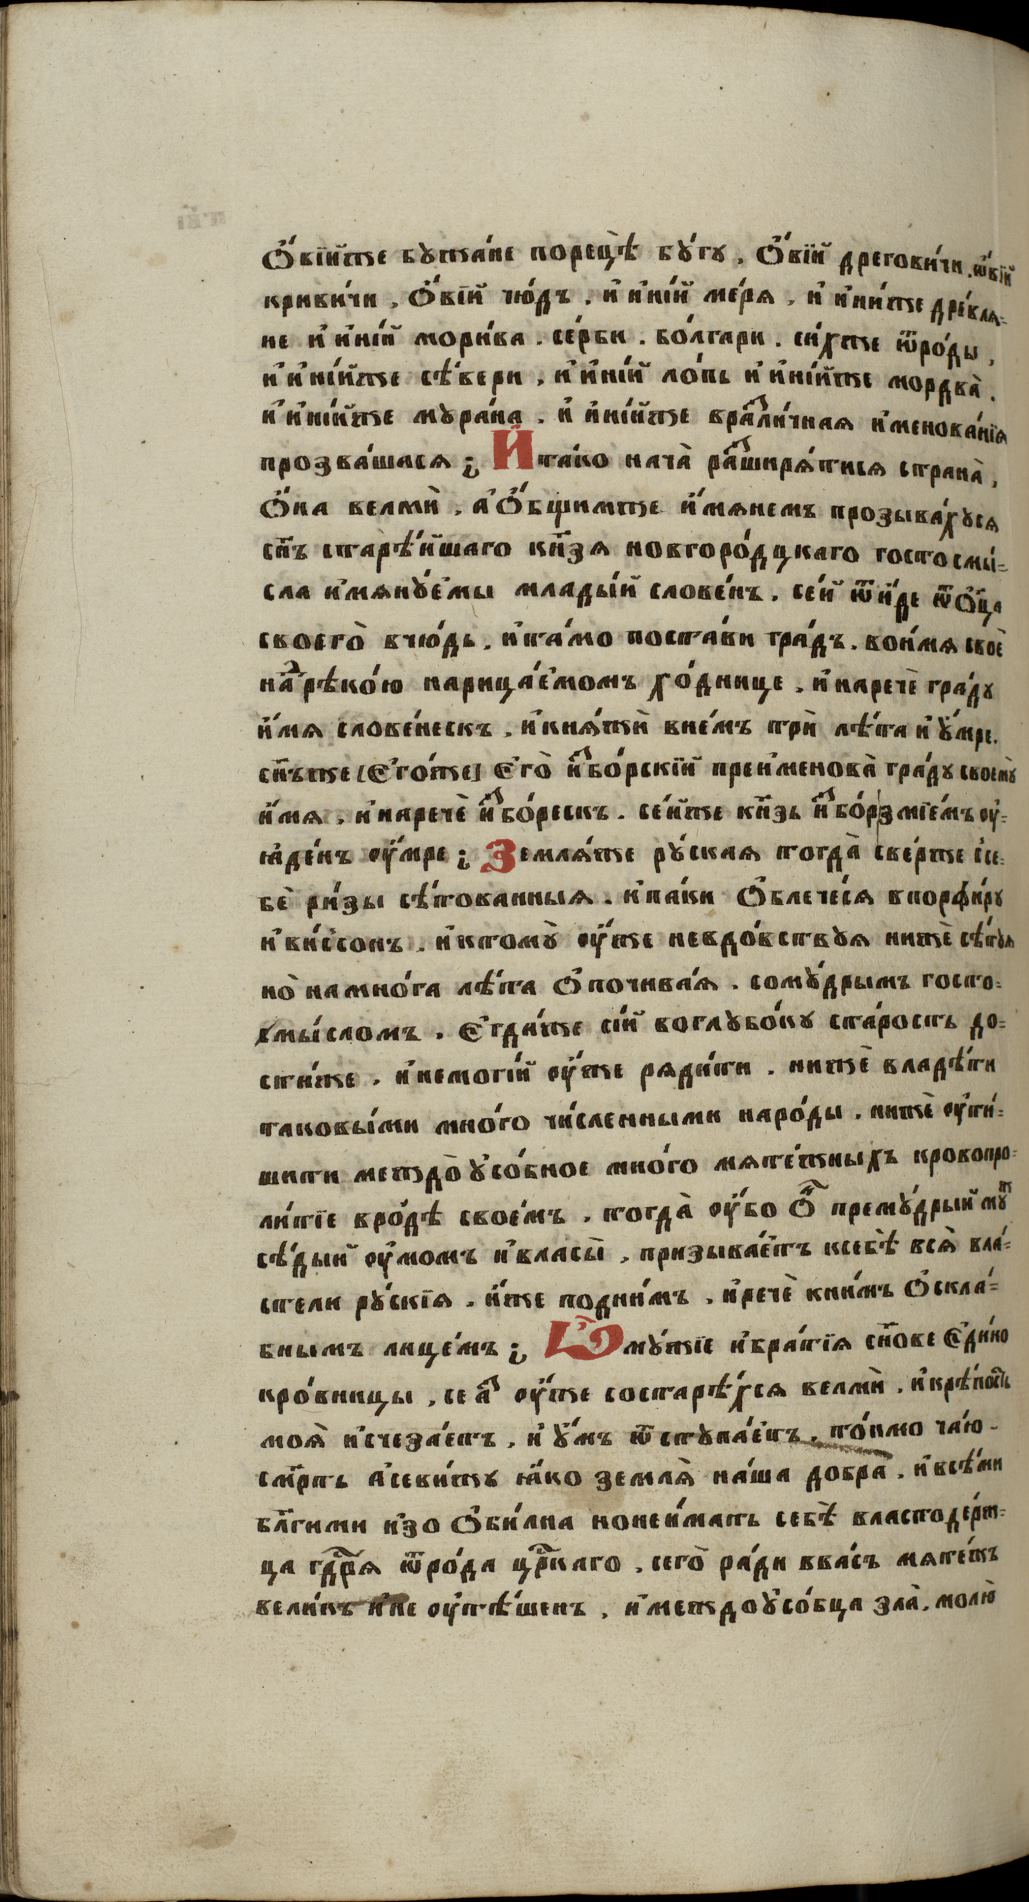 Ѻ҆вїи҆же бужа́не порецѣ̀ бу́гу , Ѻ҆вїй дреговичи . ѿвїй
кривичи , Ѻ҆вїй чю́дь , и҆ и҆нїй ме́ря , и҆ и҆нїиже дре́вля=
не и҆ и҆нїй мори́ва . се́рби . бо́лгари . си́хже ѿро́ды ,
и҆ и҆нїйже сѣ́вери , и҆ и҆нїй ло́пь и҆ и҆нїйже мордва̀ .
и҆ и҆нїйже мура́на . и҆ и҆нїйже вразли́чная и҆менова́нїя
прозва́шася ; И҆ та́ко нача̀ разширя́тися страна̀ ,
Ѻ҆на велмѝ , а҆ Ѻ҆бщимже и҆́мянемъ прозыва́хуся
сн҃ъ старѣ́йшаго кн҃зя новгоро́дцкаго госто смы́=
сла и҆мяну́емы младый слове́нъ . се́й ѿи́де ѿ Ѻ҆ц҃а
своего̀ вчю́дь . и҆ та́мо поста́ви гра́дъ . вои́мя своѐ
надрѣко́ю нарица́емомъ хо́днице , и҆ наречѐ гра́ду
и҆́мя слове́нескъ , и҆ княжѝ вне́мъ трѝ лѣ́та и҆ у҆́мре .
сн҃ъже [Є҆го́же] Є҆го̀ и҆збо́рский преи҆менова̀ гра́ду своему̀
и҆́мя , и҆ наречѐ и҆збо́рескъ . се́йже кн҃зь и҆збо́р змїе́мъ оу҆=
ꙗ҆де́нъ оу҆́мре ; Земля́же ру́ская тогда̀ све́рже ссе=
бѐ ри́зы сѣ́тованныя . и҆ па́ки Ѻ҆блече́ся впорфи́ру
и҆ ви́ссонъ . и҆ ктому̀ оу҆жѐ невдо́вствуя нижѐ сѣ́туя
но̀ намно́га лѣ́та Ѻ҆почива́я . сому́дрымъ госто=
смы́сломъ . Є҆гда́же сїй воглубо́ку ста́рость до=
сти́же . и҆ немогїй оу҆жѐ ряди́ти . нижѐ владѣ́ти
таковы́ми мно́го чи́сленными наро́ды . нижѐ оу҆ти=
шити междоусо́бное мно́го мяте́жныхъ кровопро=
ли́тїе вро́дѣ свое́мъ . тогда̀ оу҆́бо Ѻ҆н прему́дрый муж
сѣ́дый оу҆мо́мъ и҆ власы̀ , призыва́етъ ксебѣ̀ вся̀ вла́=
стели ру́скїя . и҆́же подни́мъ . и҆ речѐ кни́мъ Ѻ҆скла́=
бнымъ лице́мъ ; Ѽ му́жїе и҆ бра́тїя сн҃ове Є҆ди́но
кро́вницы , се а҆з оу҆жѐ состарѣ́хся велмѝ , и҆ крѣ́пость
моя̀ и҆счеза́етъ , и҆ у҆́мъ ѿступа́етъ . то́кмо ча́ю
сме́рть а҆ се ви́жу ꙗ҆́ко земля̀ на́ша добра̀ . и҆ всѣ́ми
бл҃гими и҆зо Ѻ҆би́лна нонеи́мать себѣ̀ властодерж=
ца гдⷭ҇ря ѿро́да црⷭ҇каго , сего̀ ра́ди вва́съ мяте́жъ
вели́къ и҆ не оу҆тѣ́шенъ , и҆ междоусо́бца зла̀ , молю̀